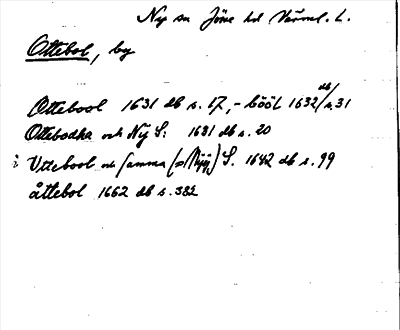 Ny sn Jösse hd Värml. L.
Ottebol, by
Ottebool 1631 db s. 17, - bööl 1632 db/s. 31
Ottebodha och Ny S: 1631 db s. 20
i Vttebool och samma (= Nyy) S. 1642 db s. 99
åttebol 1662 db s. 382